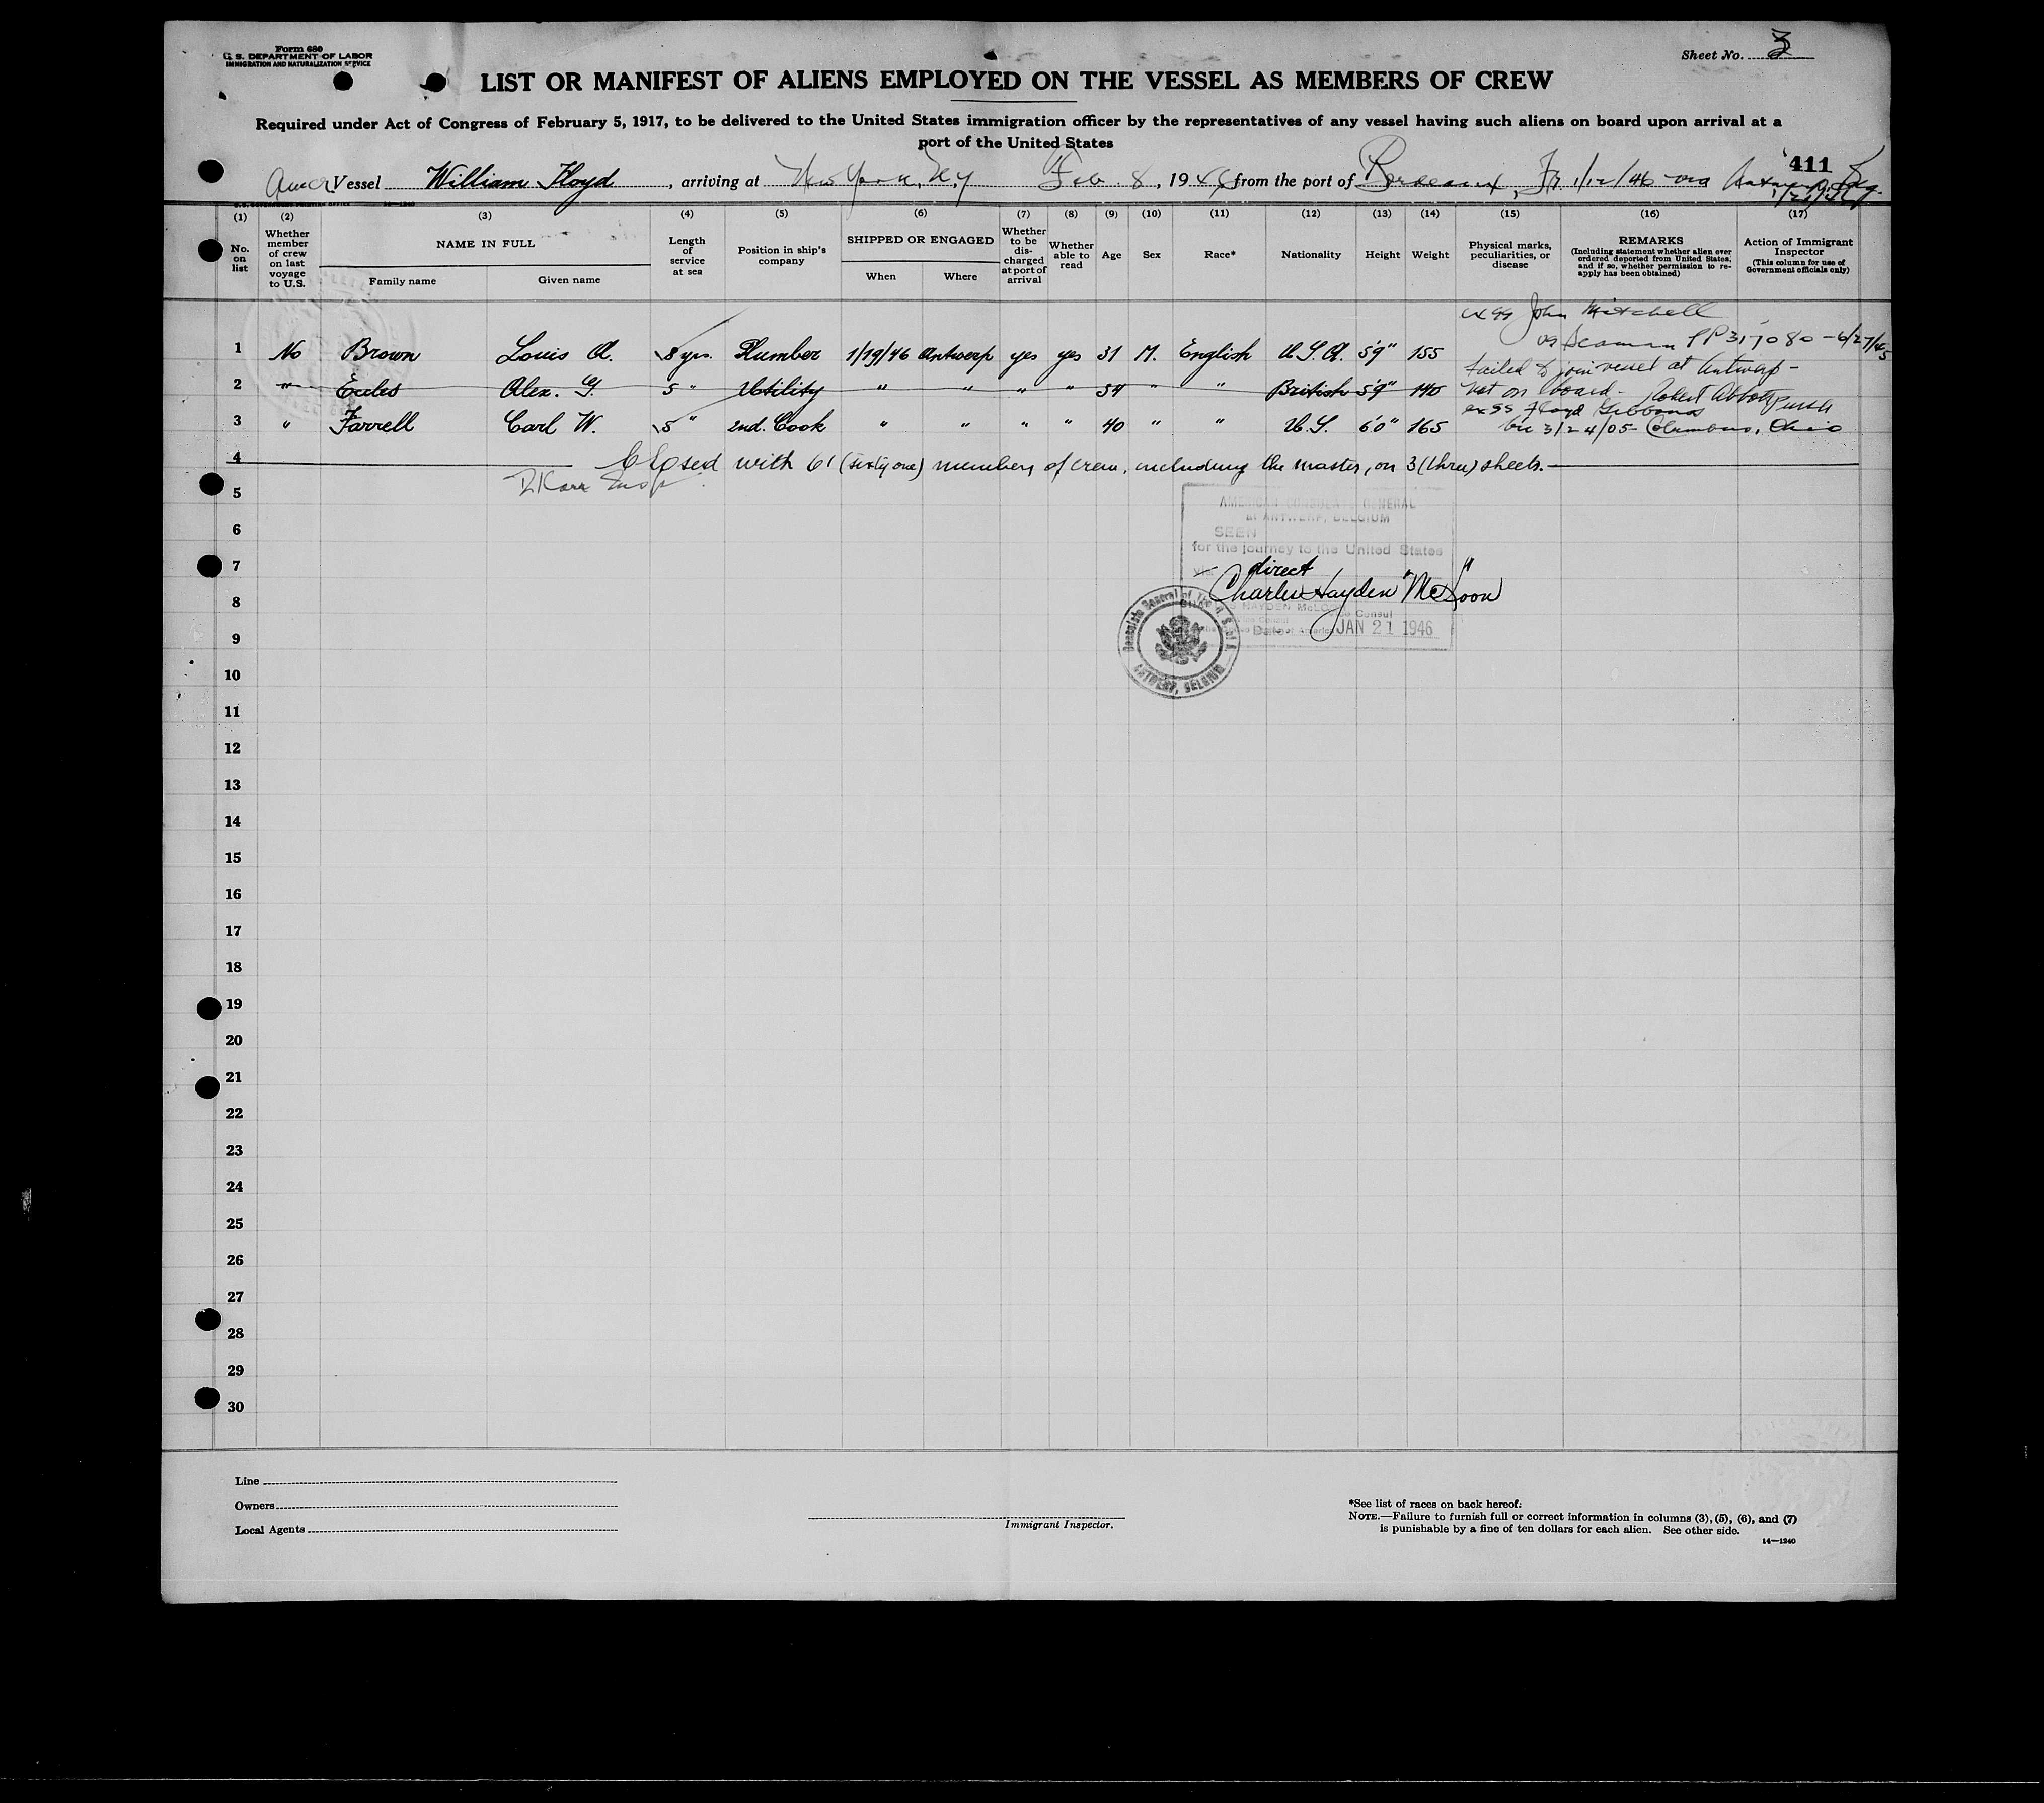 Form 680
U. S. DEPARTMENT OF LABOR
IMMIGRATION AND NATURALIZATION SERVICE
Sheet No. 3
LIST OR MANIFEST OF ALIENS EMPLOYED ON THE VESSEL AS MEMBERS OF CREW
Required under Act of Congress of February 5, 1917, to be delivered to the United States immigration officer by the representatives of any vessel having such aliens on board upon arrival at a
port of the United States
411
Amer Vessel William Floyd, arriving at New York, N.Y Feb. 8, 1946 from the port of Bordeaux, Fr. 1/12/46 via
(1) (2) (3) (4) (5) (6) (7) (8) (9) (10) (11) (12) (13) (14) (15) (16) (17)
No. on list
Whether member of crew on last voyage to U.S.
NAME IN FULL
Family name
Given name
Length of service at sea
Position in ship's company
SHIPPED OR ENGAGED
When
Where
Whether to be discharged at port of arrival
Whether able to read
Age
Sex
Race*
Nationality
Height
Weight
Physical marks, peculiarities, or disease
REMARKS
(Including statement whether alien ever ordered deported from United States, and if so, whether permission to reapply has been obtained)
Action of Immigrant Inspector
(This column for use of Government officials only)
ex SS John Mitchell
1 No Brown Louis A. 8 yrs. Plumber 1/19/46 Antwerp yes yes 31 M. English U.S.A. 5'9" 155
as Seaman PP 317080 - 6/27/45
failed to join vessel at Antwerp -
2 " Eccles Alex. G. 5 " Utility " " " " 34 " " British 5'9" 140
not on board. Robert Abbott
ex SS Floyd Gibbons
3 " Farrell Carl W. 5 " 2nd. Cook " " " " 40 " " U.S. 6'0" 165
3/24/05 - Columbus, Ohio
4 Closed with 61 (sixty one) members of crew, including the master, on 3 (three) sheets.
5
AMERICAN CONSULATE GENERAL
at ANTWERP, BELGIUM
6
SEEN
for the journey to the United States
7
via direct
Charles Hayden "McLoon"
8
HAYDEN McLOON
Consul
9
Date JAN 21 1946
ANTWERP, BELGIUM
10
11
12
13
14
15
16
17
18
19
20
21
22
23
24
25
26
27
28
29
30
Line
Owners
Local Agents
Immigrant Inspector.
*See list of races on back hereof.
NOTE.—Failure to furnish full or correct information in columns (3), (5), (6), and (7)
is punishable by a fine of ten dollars for each alien. See other side.
14—1240